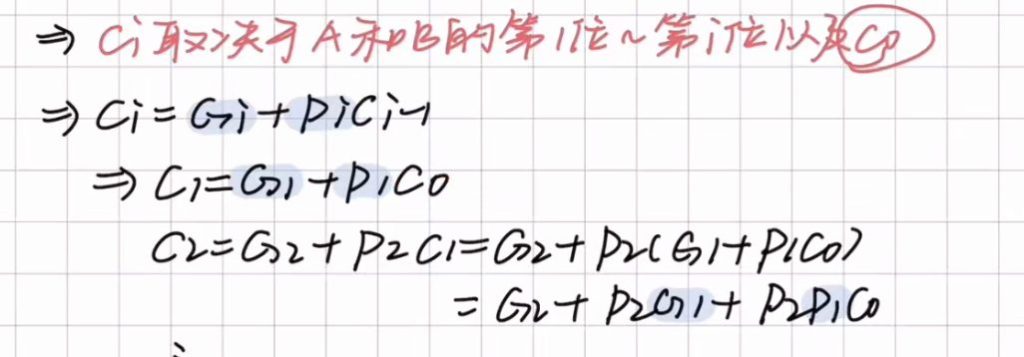 ⇒ Ci取决于A和B的第1位~第i位以及C0
⇒ Ci=Gi+PiCi-1
⇒ C1=G1+P1C0
C2=G2+P2C1=G2+P2(G1+P1C0)
=G2+P2G1+P2P1C0